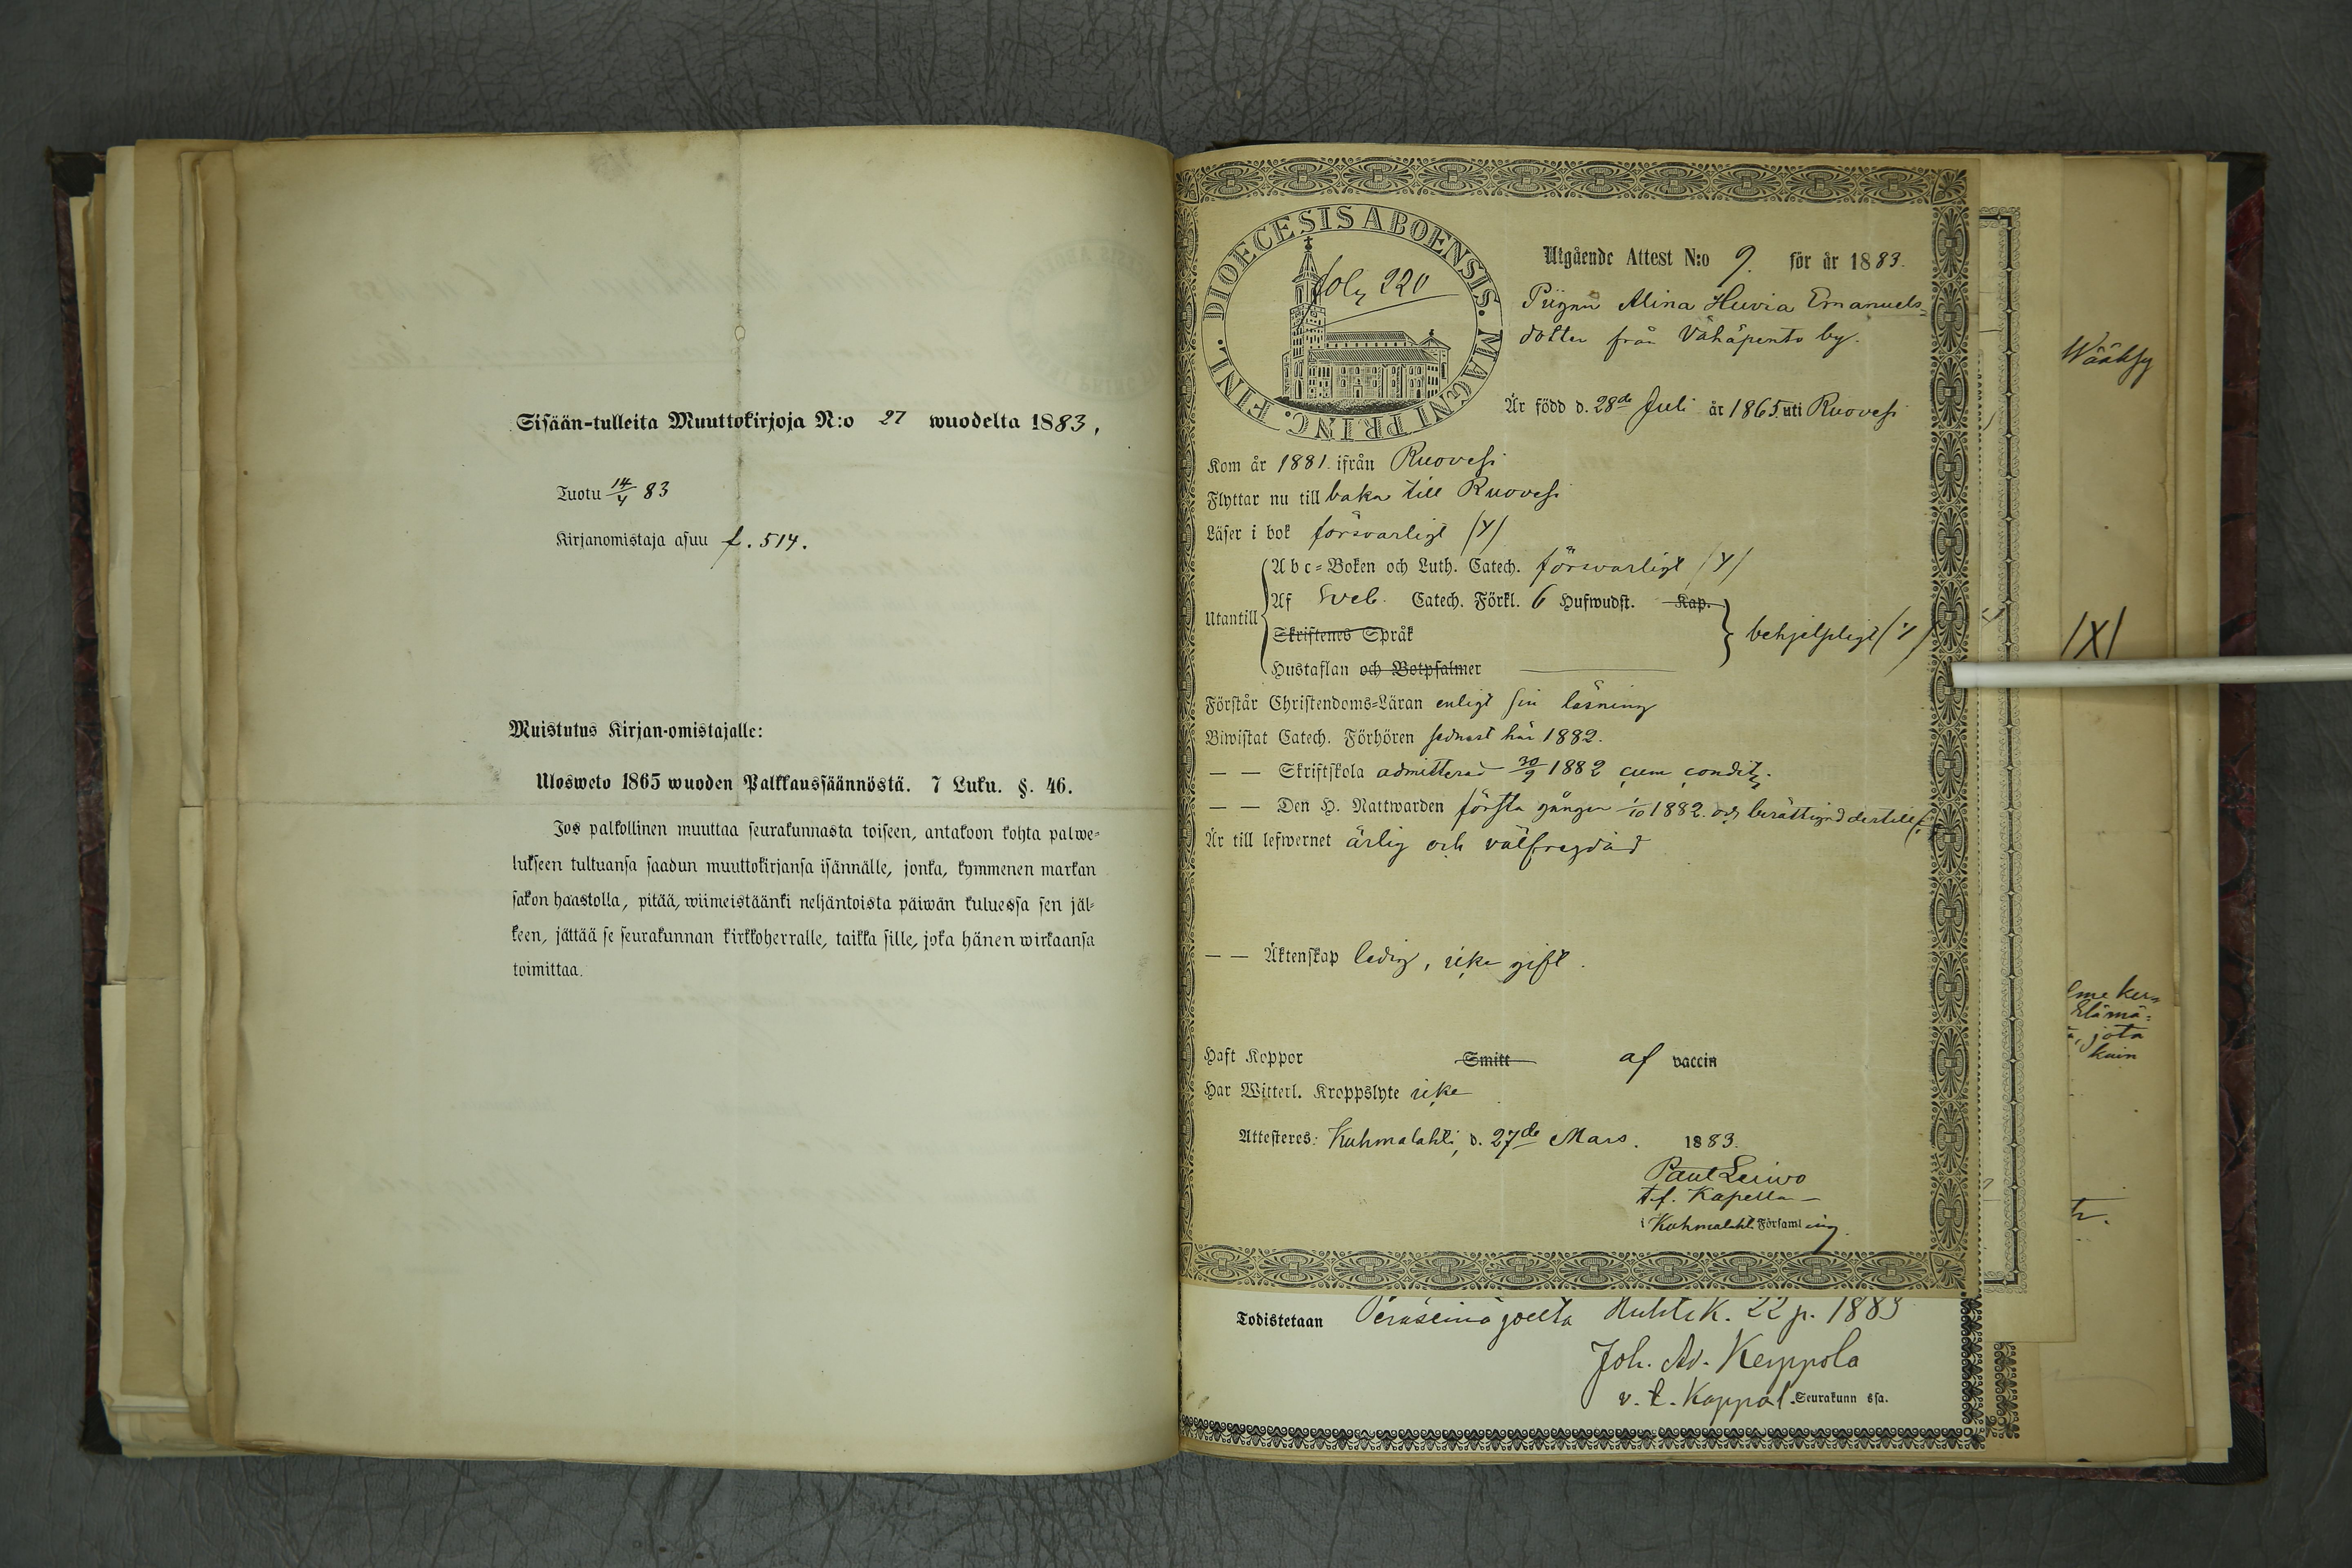 Sisään-tulleita Muuttokirjoja N:o 27 wuodelta 1883,
Tuotu 14/4 83
Kirjanomistaja asuu f. 514.
Muistutus Kirjan-omistajalle:
Ulosweto 1865 wuoden Palkkaussäännöstä. 7 Luku. §. 46.
Jos palkollinen muuttaa seurakunnasta toiseen, antakoon kohta palwe-
lukseen tultuansa saadun muuttokirjansa isännälle, jonka, kymmenen markan
sakon haastolla, pitää, wiimeistäänki neljäntoista päiwän kuluessa sen jäl-
keen, jättää se seurakunnan kirkkoherralle, taikka sille, joka hänen wirkaansa
toimittaa.
DIOECESIS ABOENSIS. MAGNI PRINC. FINL.
fol. 220
Utgående Attest N:o 9. för år 1883.
Pigan Alina Huvia Emanuels-
dotter från Vähäpento by.
Är född d. 28de Juli år 1865 uti Ruovesi
Kom år 1881. ifrån Ruovesi
Flyttar nu till baka till Ruovesi
Läser i bok försvarligt /Y/
Utantill
Abc-Boken och Luth. Catech. försvarligt /Y/
Af Sveb. Catech. Förkl. 6 Hufwudst. Kap.
Skriftenes Språk
behjelpligt /Y/
Hustaflan och Botpsalmer
Förstår Christendoms-Läran enligt sin läsning
Biwistat Catech. Förhören sednast här 1882.
— — Skriftskola admitterad 30/9 1882 cum condit.
— — Den H. Nattwarden första gången 1/10 1882. och berättigad dertill
Är till lefwernet ärlig och välfrejdad
— — Äktenskap ledig, icke gift.
Haft Koppor Smitt af vaccin
Har Witterl. Kroppslyte icke
Attesteres: Kuhmalahti, d. 27de Mars. 1883.
Paul Leiwo
t.f. Kapellan
i Kuhmalaht. Församling.
Todistetaan Peräseinäjoelta Huhtik. 22 p. 1883
Joh. Ad. Keppola
v. t. Kappal. Seurakunn ssa.
Wääksy
/X/
Elämä-
jota
kuin